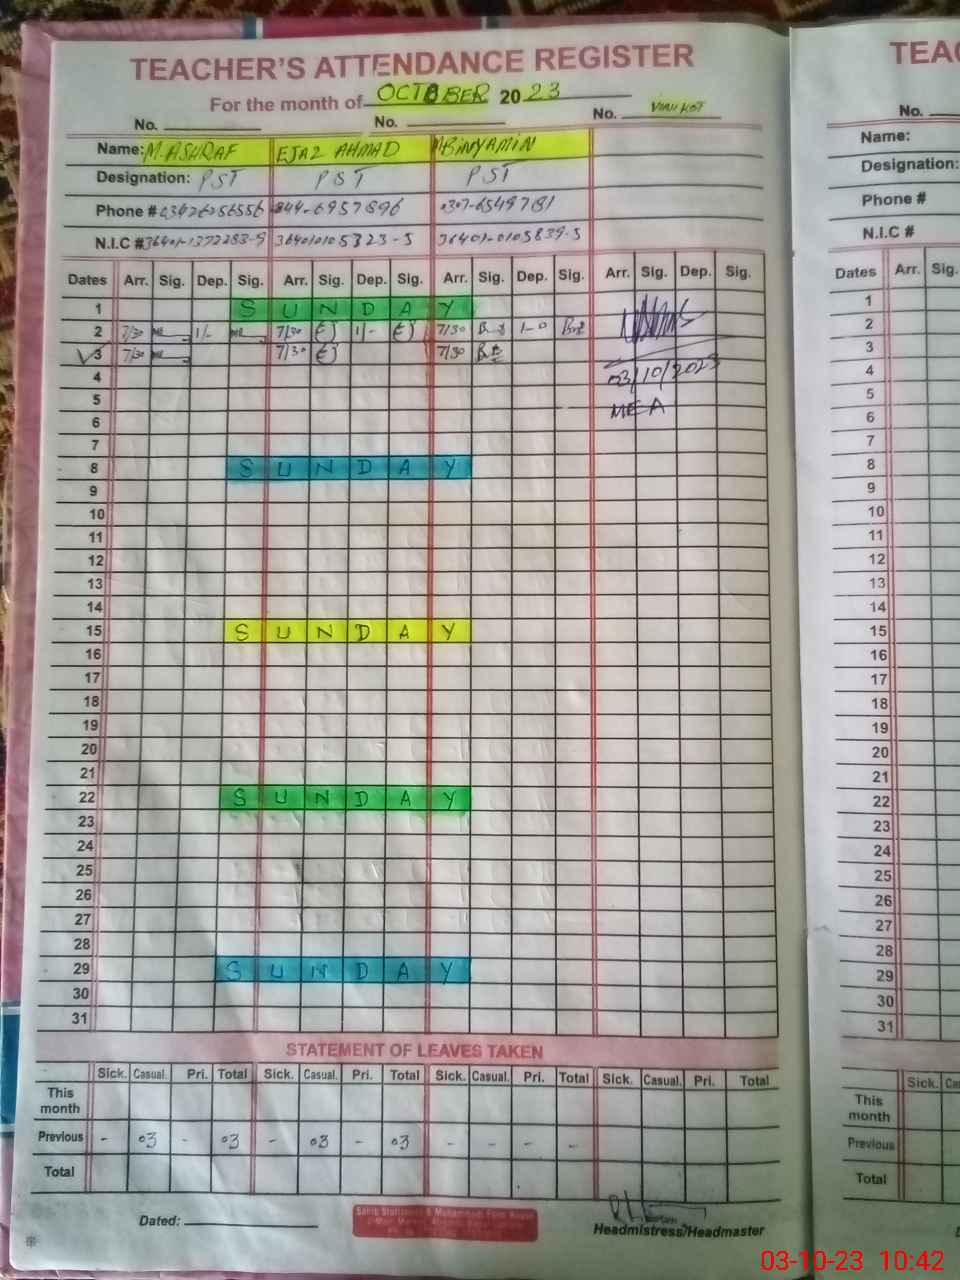 TEACHER'S ATTENDANCE REGISTER
For the month of OCTOBER 2023
No. No. No.
Name: M.ASHRAF EJAZ AHMAD M BiNYAMiN
Designation: PST PST PST
Phone # 0307-6549781
N.I.C # 36401-0105839-5
Dates Arr. Sig. Dep. Sig. Arr. Sig. Dep. Sig. Arr. Sig. Dep. Sig. Arr. Sig. Dep. Sig.
1 S U N D A Y
2 7/30 1/- 7/30 1/- 7/30 1-0
3 7/30 7/30 7/30
4 03/10/2023
5
6 MEA
7
8 S U N D A Y
9
10
11
12
13
14
15 S U N D A Y
16
17
18
19
20
21
22 S U N D A Y
23
24
25
26
27
28
29 S U N D A Y
30
31
STATEMENT OF LEAVES TAKEN
Sick. Casual. Pri. Total Sick. Casual. Pri. Total Sick. Casual. Pri. Total Sick. Casual. Pri. Total
This month
Previous - 03 - 03 - 03 - 03 - - - -
Total
Dated:
Headmistress/Headmaster
TEAC
No.
Name:
Designation:
Phone #
N.I.C #
Dates Arr. Sig.
1
2
3
4
5
6
7
8
9
10
11
12
13
14
15
16
17
18
19
20
21
22
23
24
25
26
27
28
29
30
31
Sick. Ca
This month
Previous
Total
03-10-23 10:42